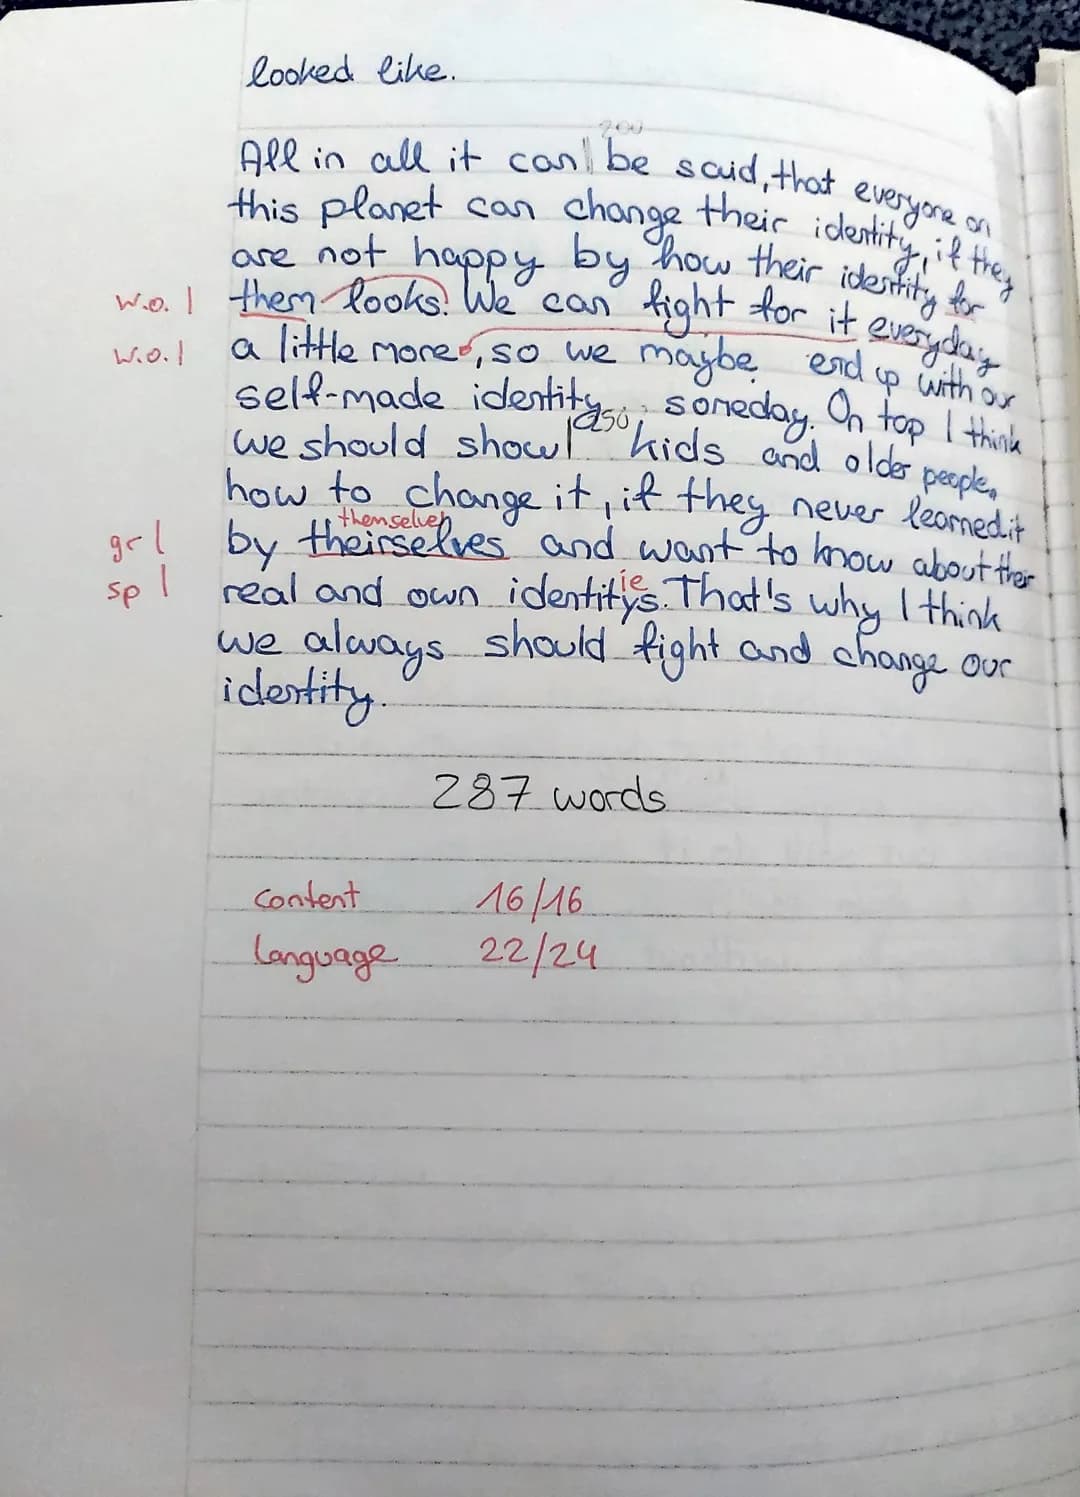 looked like.
200
All in all it can be said, that everyone on
this planet can change their identity, if they
are not happy by how their identity for
w.o. l them looks. We can fight for it everyday
w.o. l a little more, so we maybe end up with our
self-made identity someday. On top I think
250
we should show kids and older people,
how to change it, if they never learned it
themselves
gr l by theirselves and want to know about their
ie
sp l real and own identitys. That's why I think
we always should fight and change our
identity.
287 words
content 16/16
language 22/24